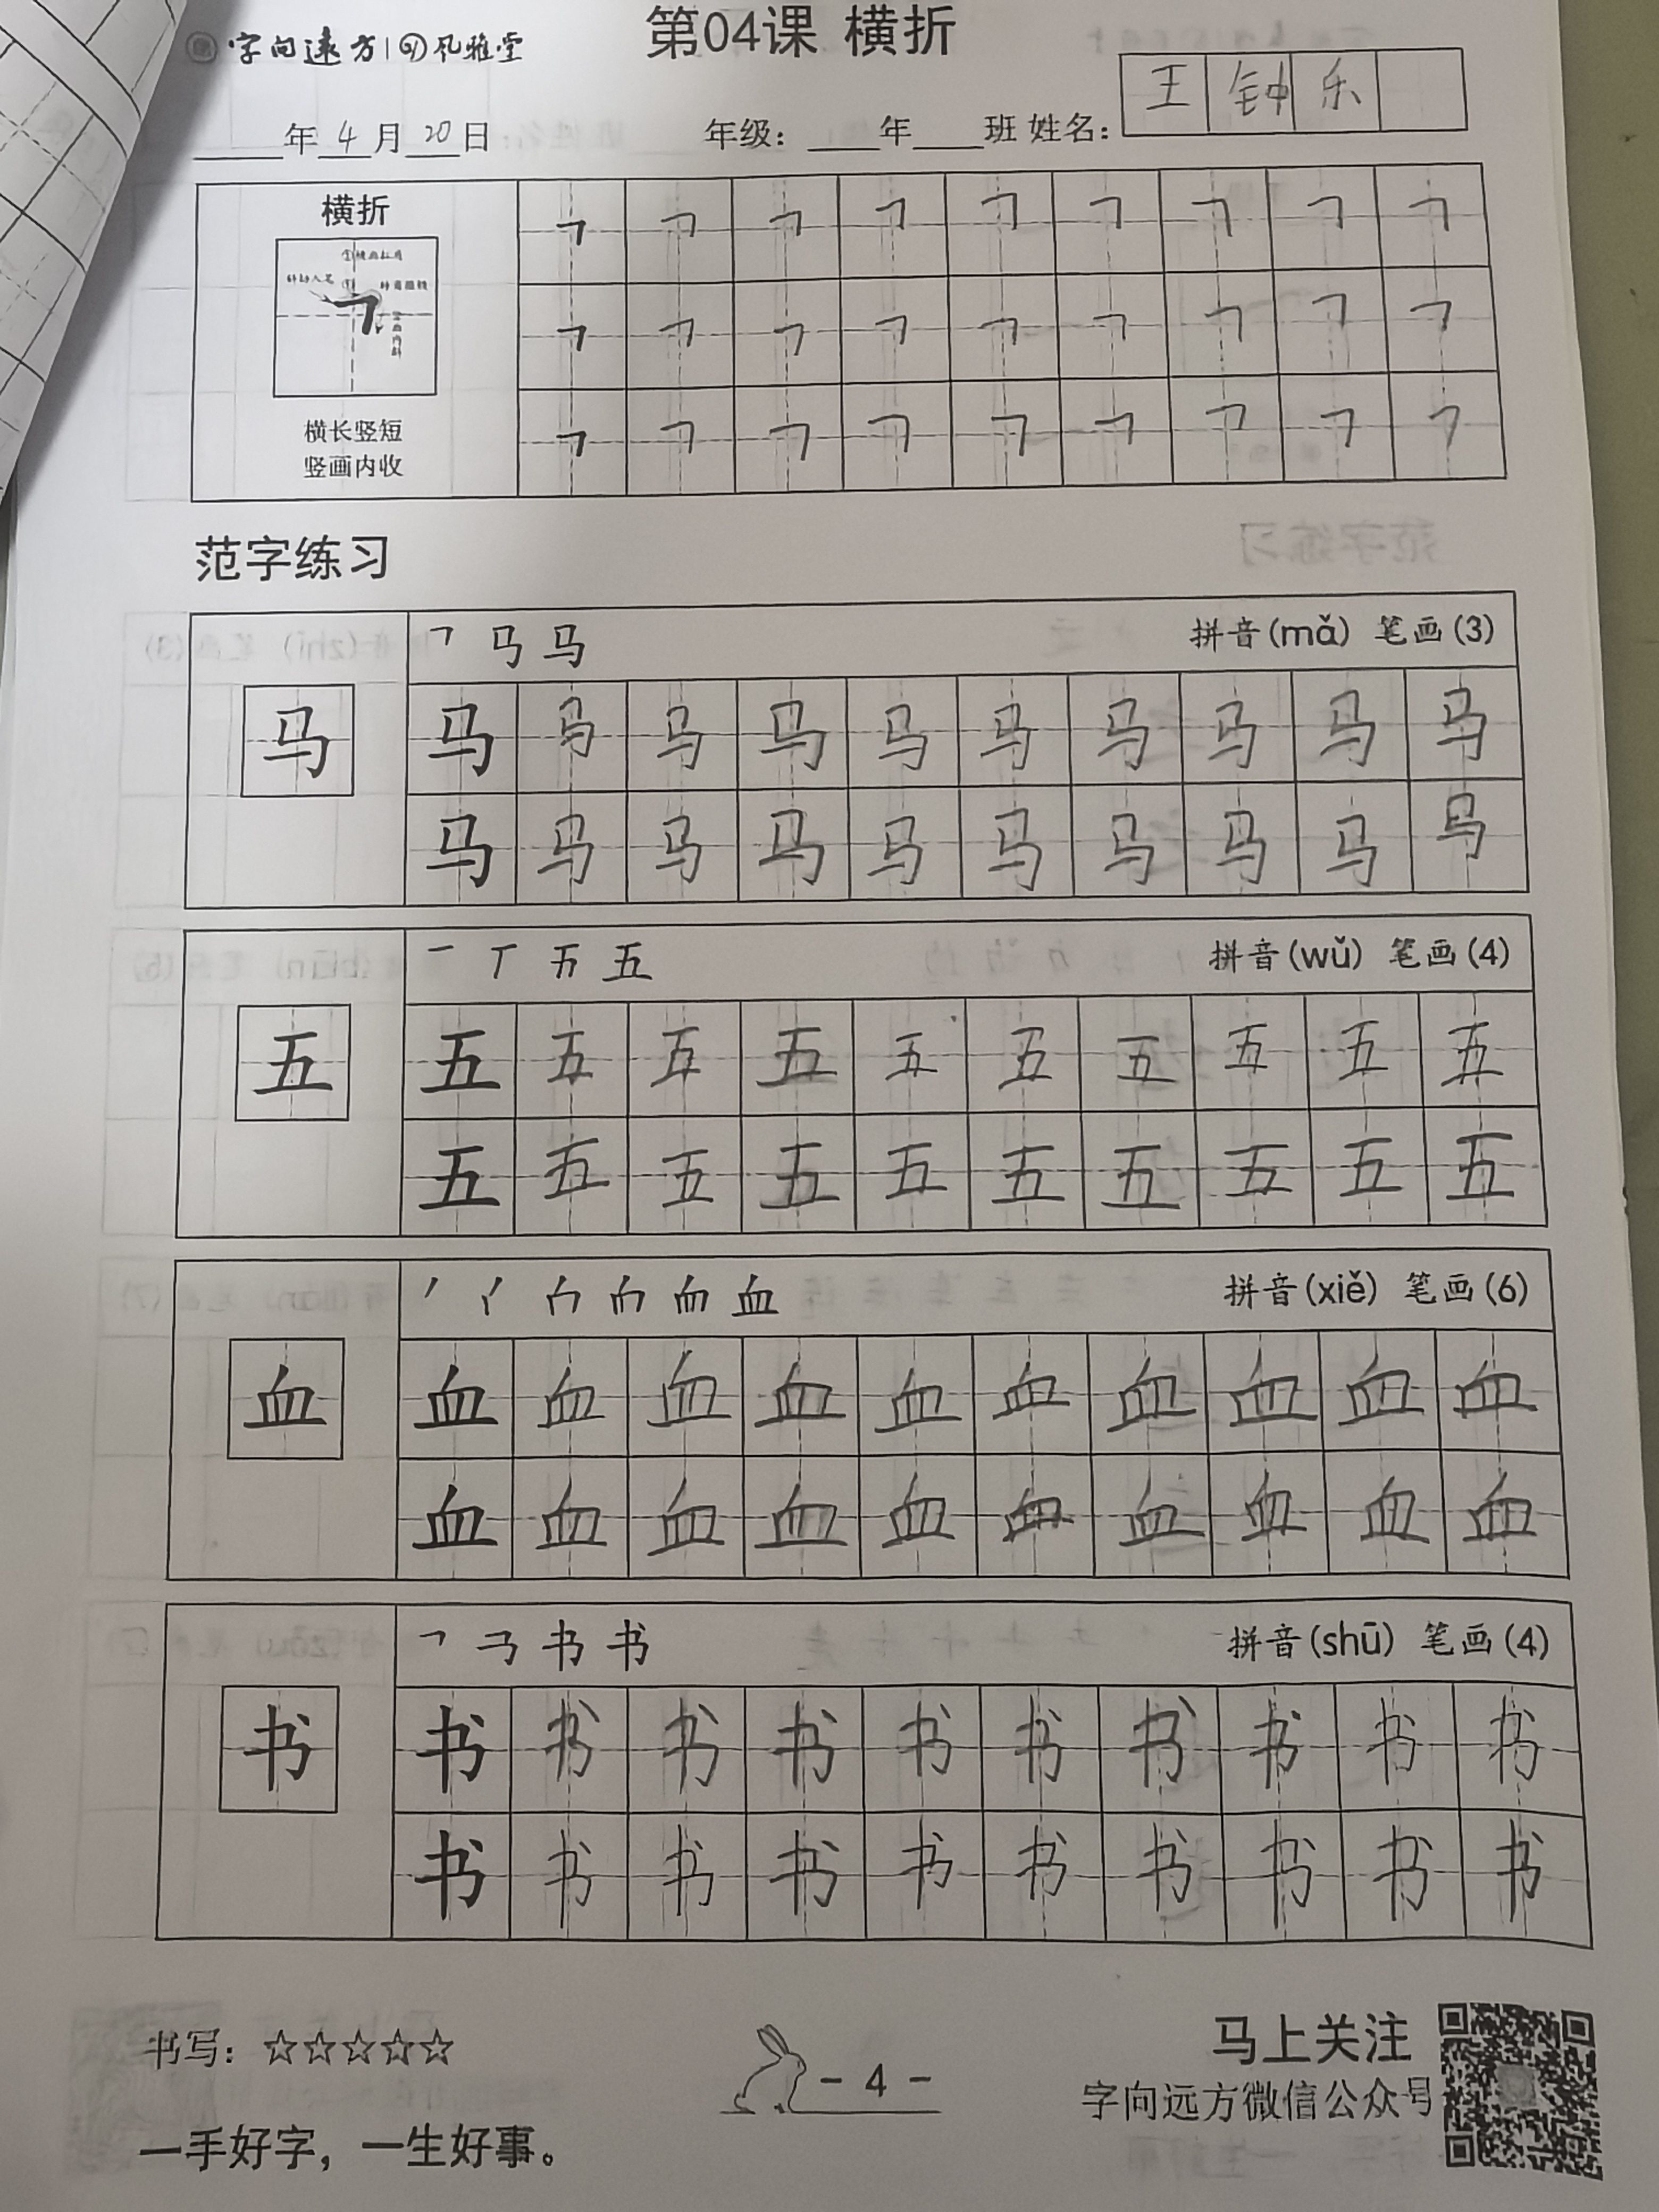 字向远方 | 风雅堂
第04课 横折
王钟乐
年4月20日 年级：年班 姓名：
横折
横长竖短
竖画内收
㇕ ㇕ ㇕ ㇕ ㇕ ㇕ ㇕ ㇕ ㇕
㇕ ㇕ ㇕ ㇕ ㇕ ㇕ ㇕ ㇕ ㇕
㇕ ㇕ ㇕ ㇕ ㇕ ㇕ ㇕ ㇕ ㇕
范字练习
马 拼音(mǎ) 笔画(3)
马
马 马 马 马 马 马 马 马 马 马
马 马 马 马 马 马 马 马 马 马
一 丅 五 拼音(wǔ) 笔画(4)
五
五 五 五 五 五 五 五 五 五 五
五 五 五 五 五 五 五 五 五 五
血 拼音(xiě) 笔画(6)
血
血 血 血 血 血 血 血 血 血 血
血 血 血 血 血 血 血 血 血 血
㇕ 书 拼音(shū) 笔画(4)
书
书 书 书 书 书 书 书 书 书 书
书 书 书 书 书 书 书 书 书 书
书写：☆☆☆☆☆
一手好字，一生好事。
- 4 -
马上关注
字向远方微信公众号